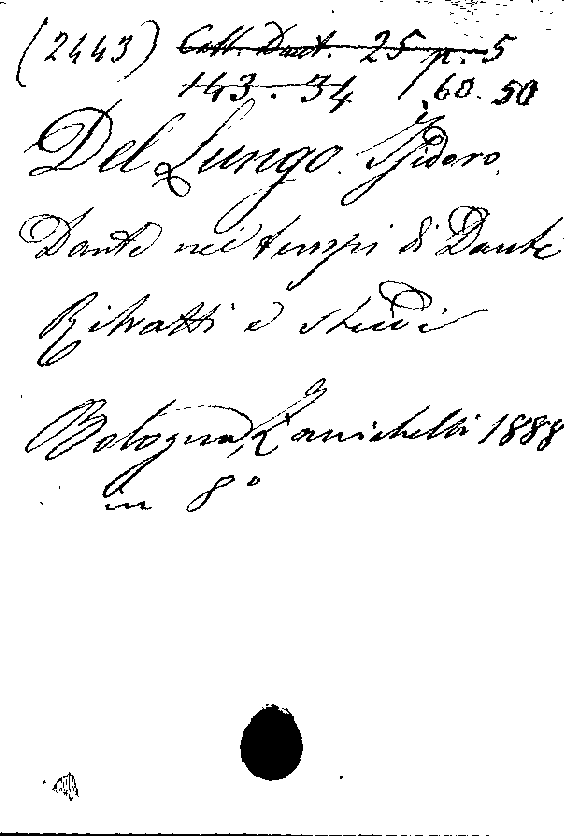 (2443) Coll. Dant. 25 p. 5
143. 34 / 60. 50
Del Lungo. Isidoro.
Dante nei tempi di Dante
Ritratti e studi
Bologna, Zanichelli 1888
in 8°